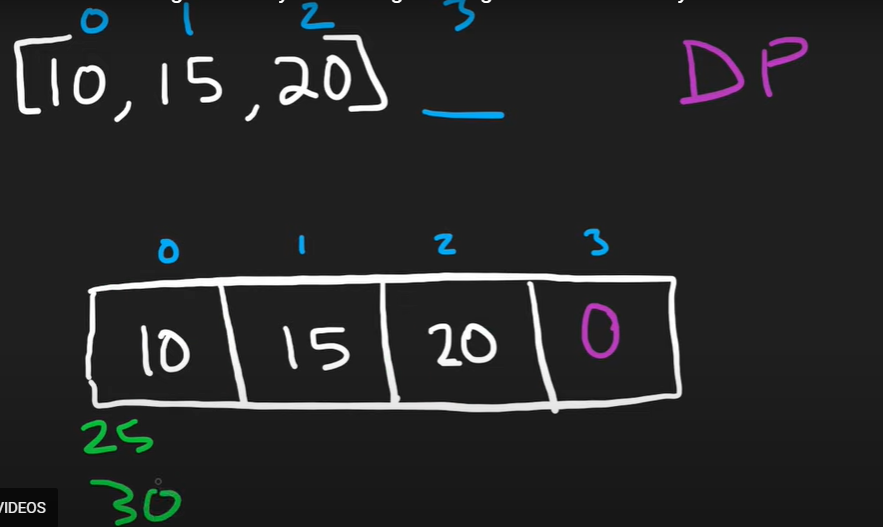 0 1 2 3
[10, 15, 20] _ DP
0 1 2 3
10 15 20 0
25
30
VIDEOS